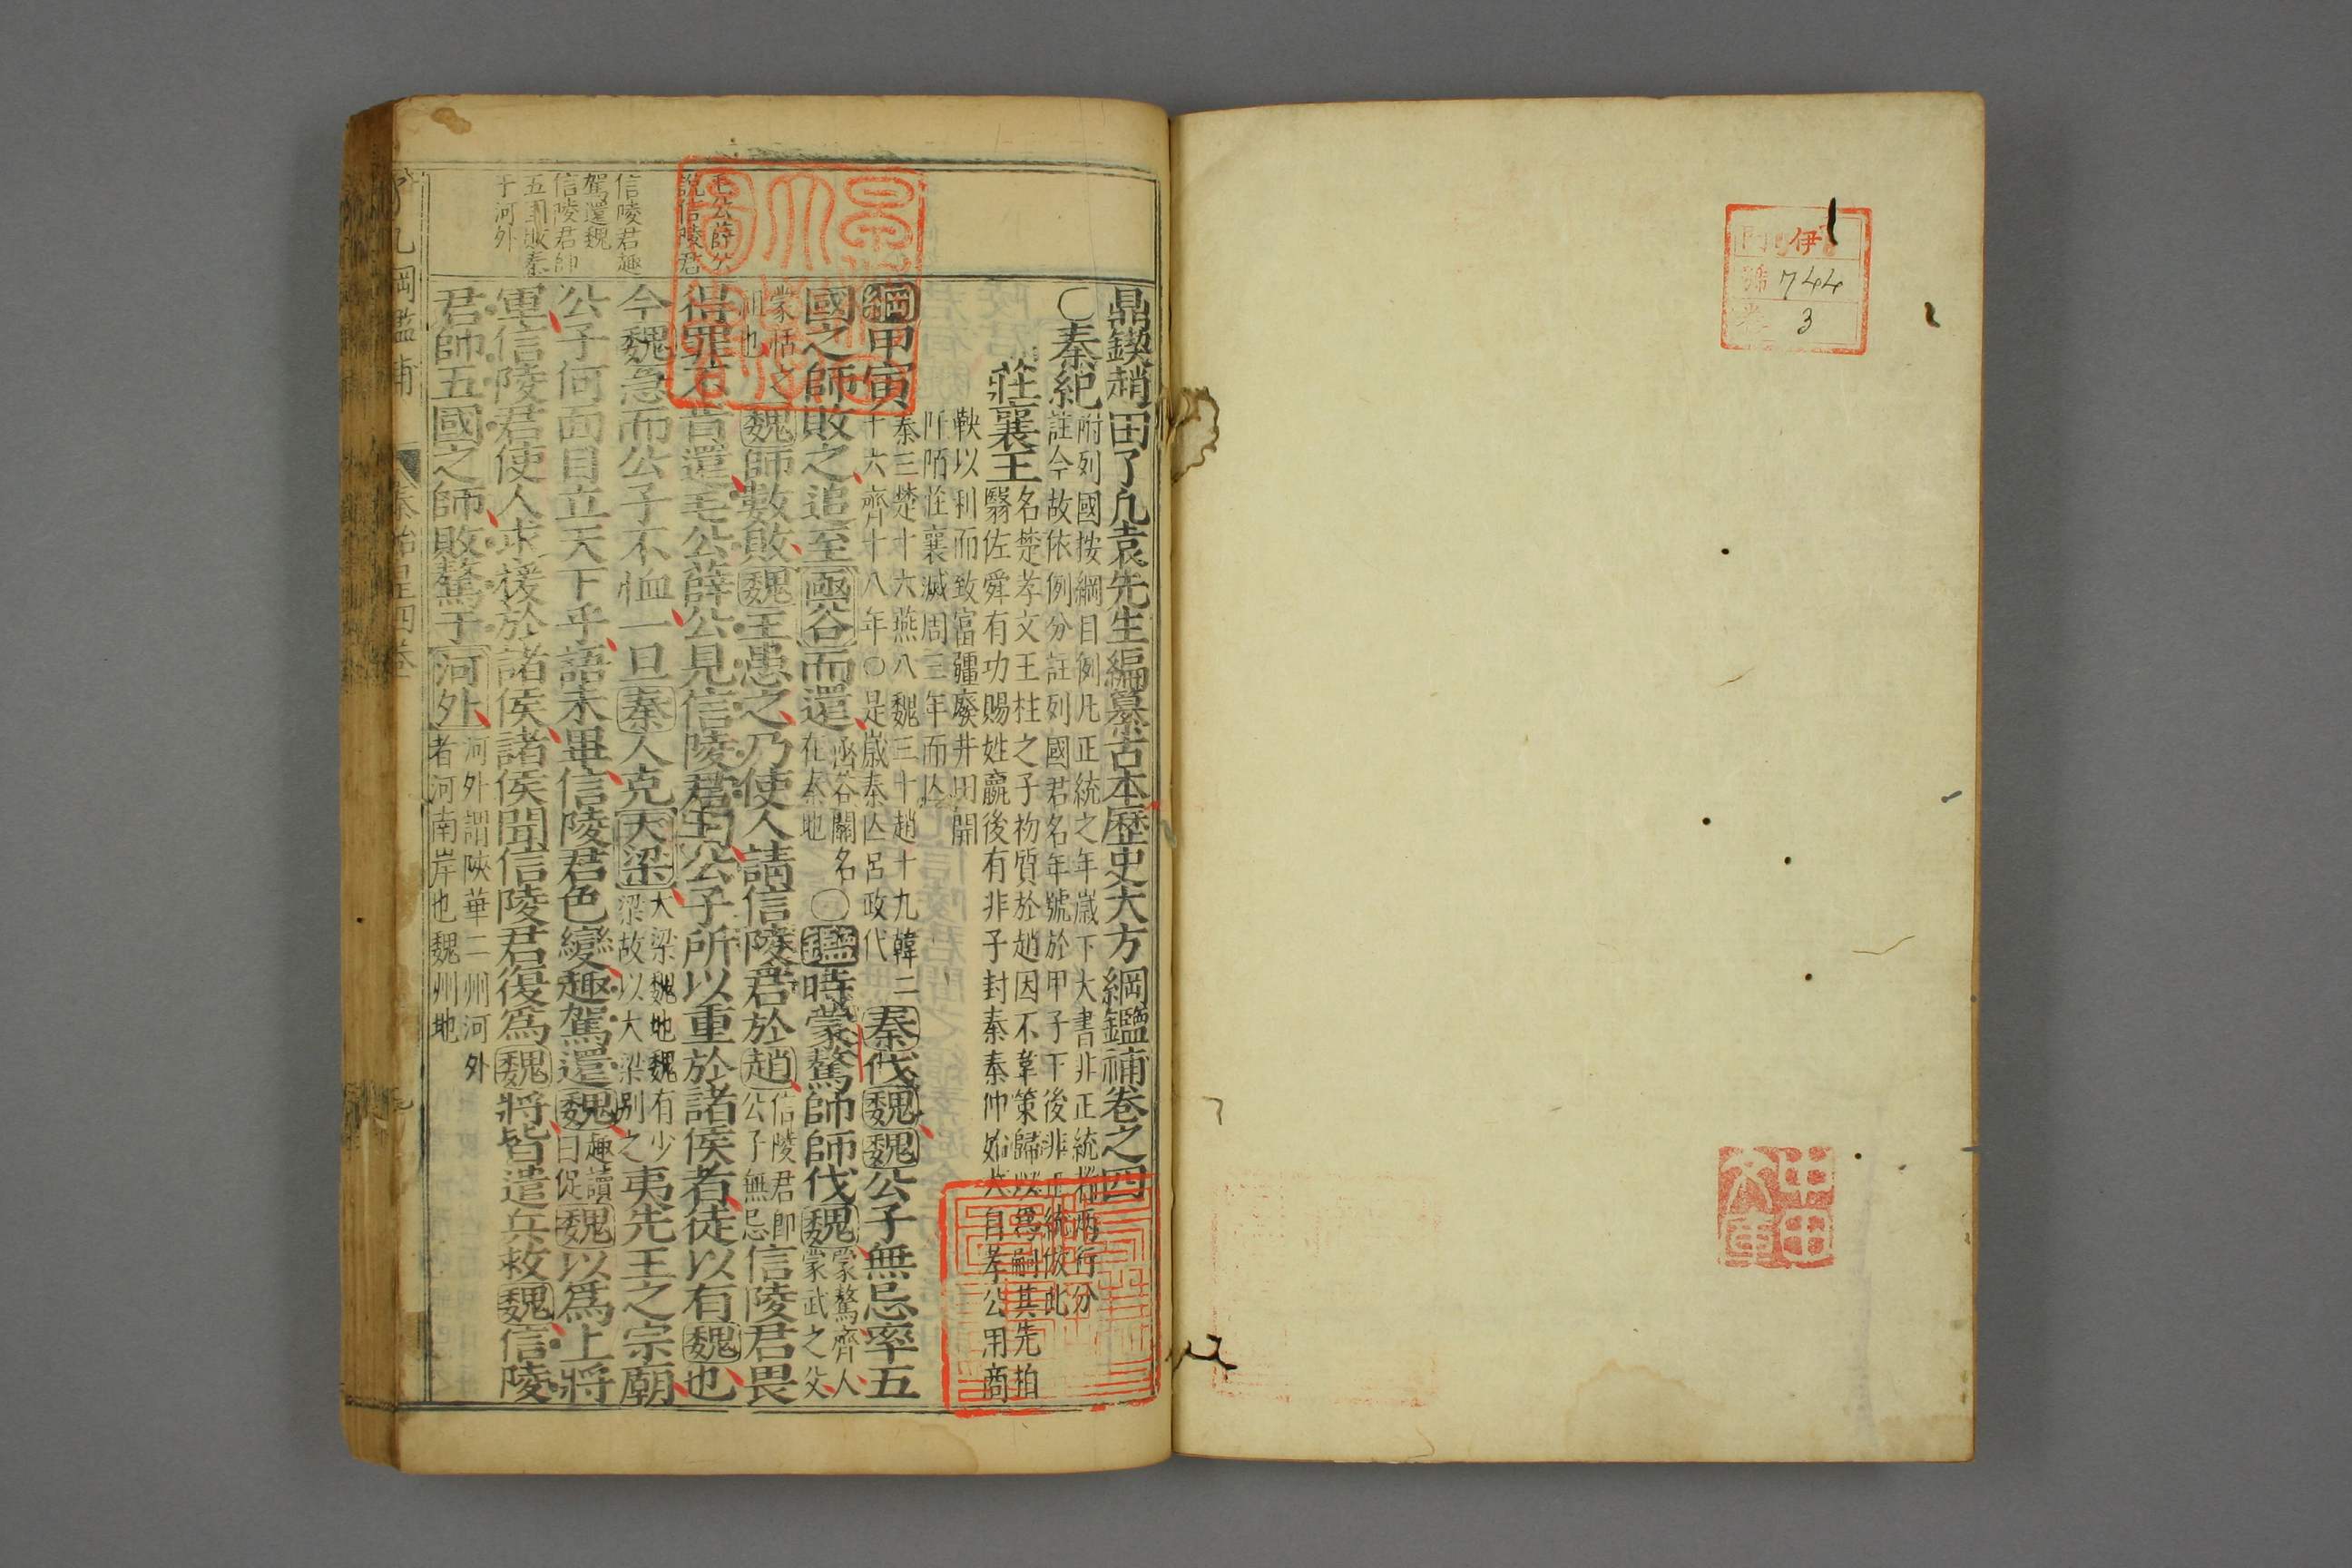 伊
號 744
3
鼎鍥趙田了凡袁先生編纂古本歷史大方綱鑑補卷之四
〇秦紀
附列國按綱目例凡正統之年歲下大書非正統者兩行分
註今故依例分註列國君名年號於甲子下後非正統倣此
莊襄王
名楚孝文王柱之子初質於趙因不韋策歸以爲嗣其先栢
翳佐舜有功賜姓嬴後有非子封秦秦仲始大自孝公用商
鞅以利而致富疆廢井田開
阡陌徃襄滅周三年而亾
綱甲寅
秦三楚十六燕八魏三十趙十九韓二
十六齊十八年〇是歲秦亾呂政代
秦伐魏魏公子無忌率五
國之師敗之追至函谷而還
函谷關名
在秦地
〇鑑時蒙驁帥師伐魏
蒙驁齊人
蒙武之父
蒙恬之
祖也
魏師數敗魏王患之乃使人請信陵君於趙
信陵君即
公子無忌
信陵君畏
得罪不肯還毛公薛公見信陵君曰公子所以重於諸侯者徒以有魏也
今魏急而公子不恤一旦秦人克大梁
大梁魏地魏有少
梁故以大梁別之
夷先王之宗廟
公子何面目立天下乎語未畢信陵君色變趣駕還魏
趣讀
曰促
魏以爲上將
軍信陵君使人求援於諸侯諸侯聞信陵君復爲魏將皆遣兵救魏信陵
君師五國之師敗驁于河外
河外謂陝華二州河外
者河南岸也魏州地
毛公薛公
說信陵君
信陵君趣
駕還魏
信陵君帥
五國敗秦
于河外
了凡綱鑑補
秦始皇四卷